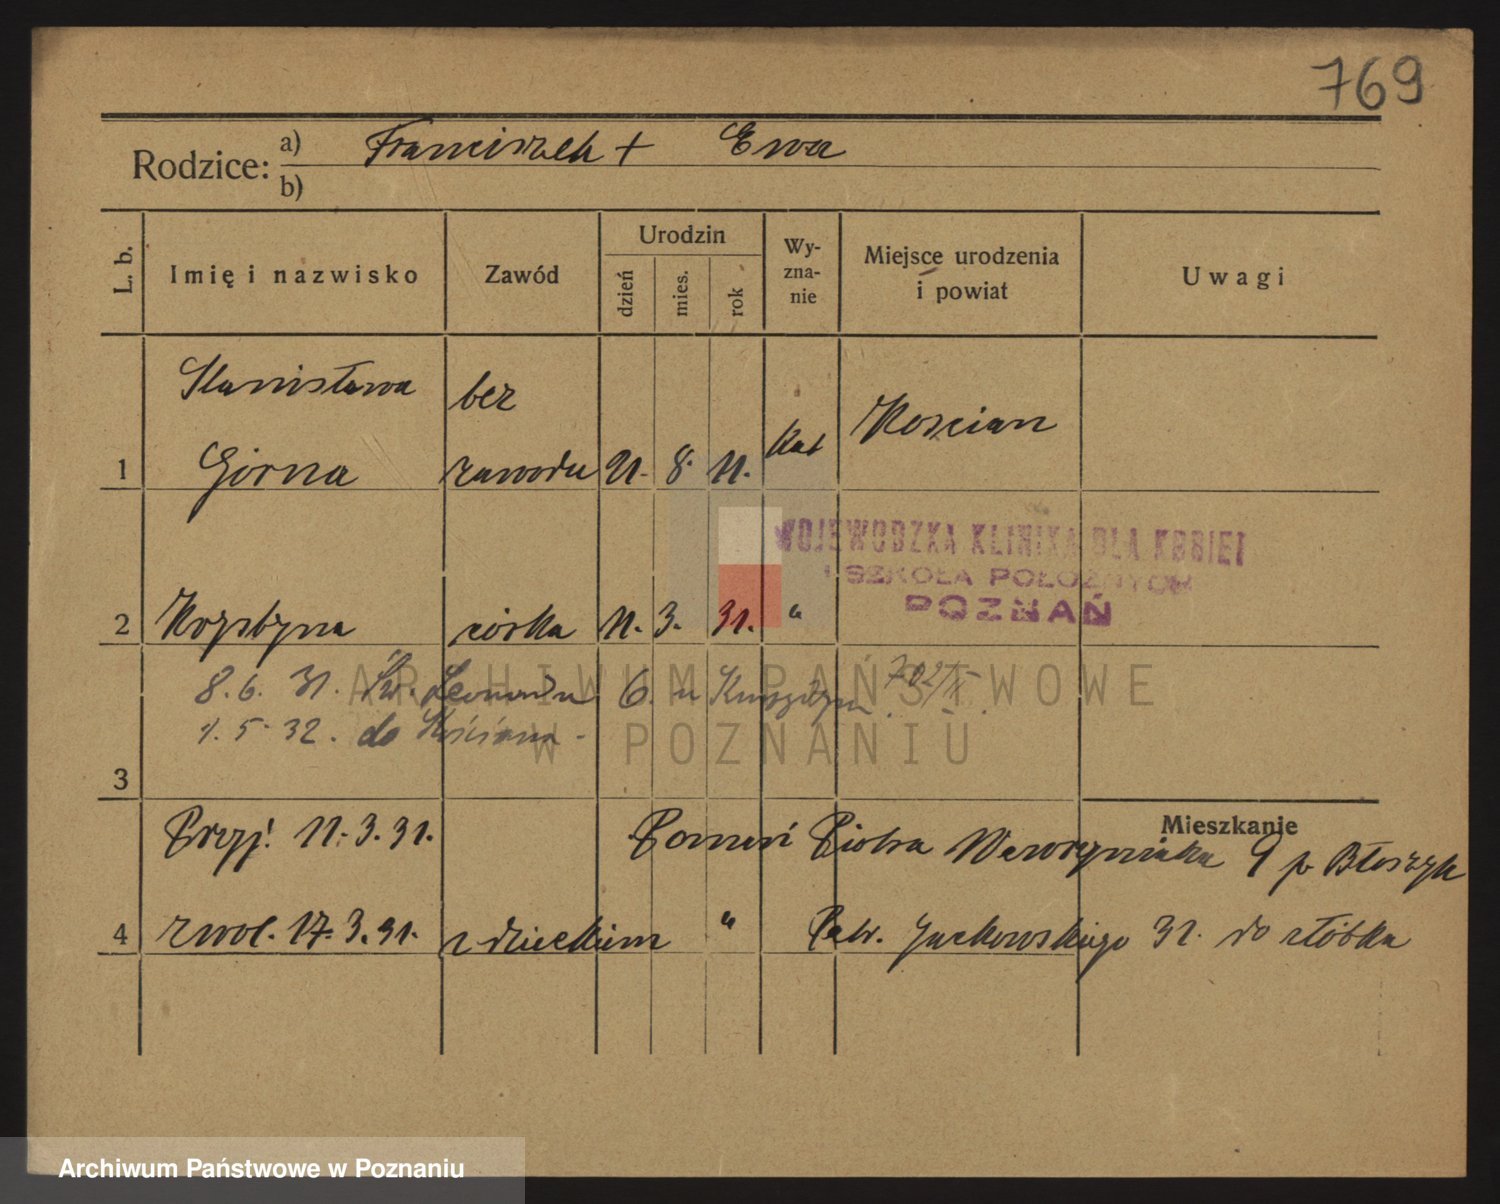 769
Rodzice: a) Franciszek + Ewa
b)
L. b.
Imię i nazwisko
Zawód
Urodzin
dzień
mies.
rok
Wy-
zna-
nie
Miejsce urodzenia
i powiat
Uwagi
Stanisława bez
1 Górna zawodu 21. 8. 11. Kat Kościan
WOJEWODZKA KLINIKA DLA KOBIET
I SZKOŁA POŁOŻNYCH
POZNAŃ
2 Krystyna córka 11. 3. 31. "
8.6. 31. Św. Leonarda 6. u 702/II
1.5 32. do Kościana -
3
ARCHIWUM PAŃSTWOWE
W POZNANIU
Mieszkanie
Przyj. 11.3.31. Poznań Piotra Wawrzyniaka 9 p Błoszyk
4 zwol. 17.3.31. z dzieckiem " Patr. Jackowskiego 31. do żłóbka
Archiwum Państwowe w Poznaniu